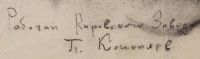 Рабочий Кировского Завод
П. Коновалев